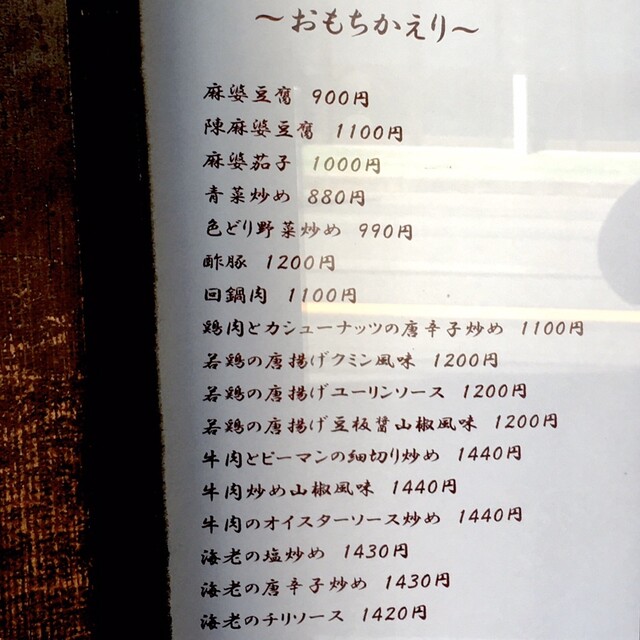 ～おもちかえり～
麻婆豆腐 900円
陳麻婆豆腐 1100円
麻婆茄子 1000円
青菜炒め 880円
色どり野菜炒め 990円
酢豚 1200円
回鍋肉 1100円
鶏肉とカシューナッツの唐辛子炒め 1100円
若鶏の唐揚げクミン風味 1200円
若鶏の唐揚げユーリンソース 1200円
若鶏の唐揚げ豆板醤山椒風味 1200円
牛肉とピーマンの細切り炒め 1440円
牛肉炒め山椒風味 1440円
牛肉のオイスターソース炒め 1440円
海老の塩炒め 1430円
海老の唐辛子炒め 1430円
海老のチリソース 1420円